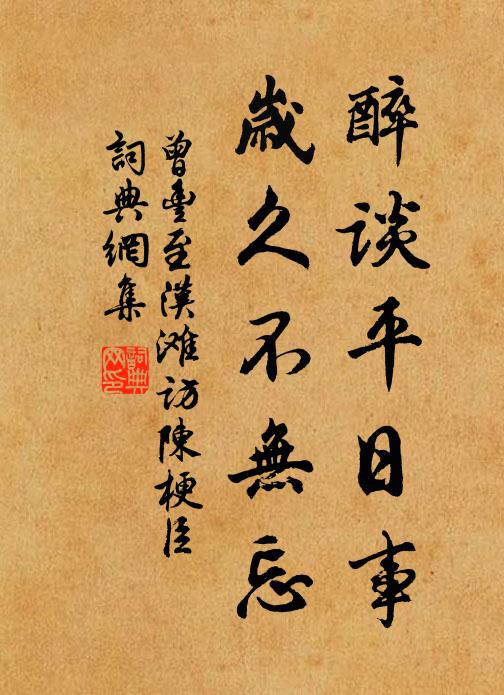 醉談平日事
歲久不無忘
曾豐至漢灘訪陳梗臣
詞典網集
詞典网印